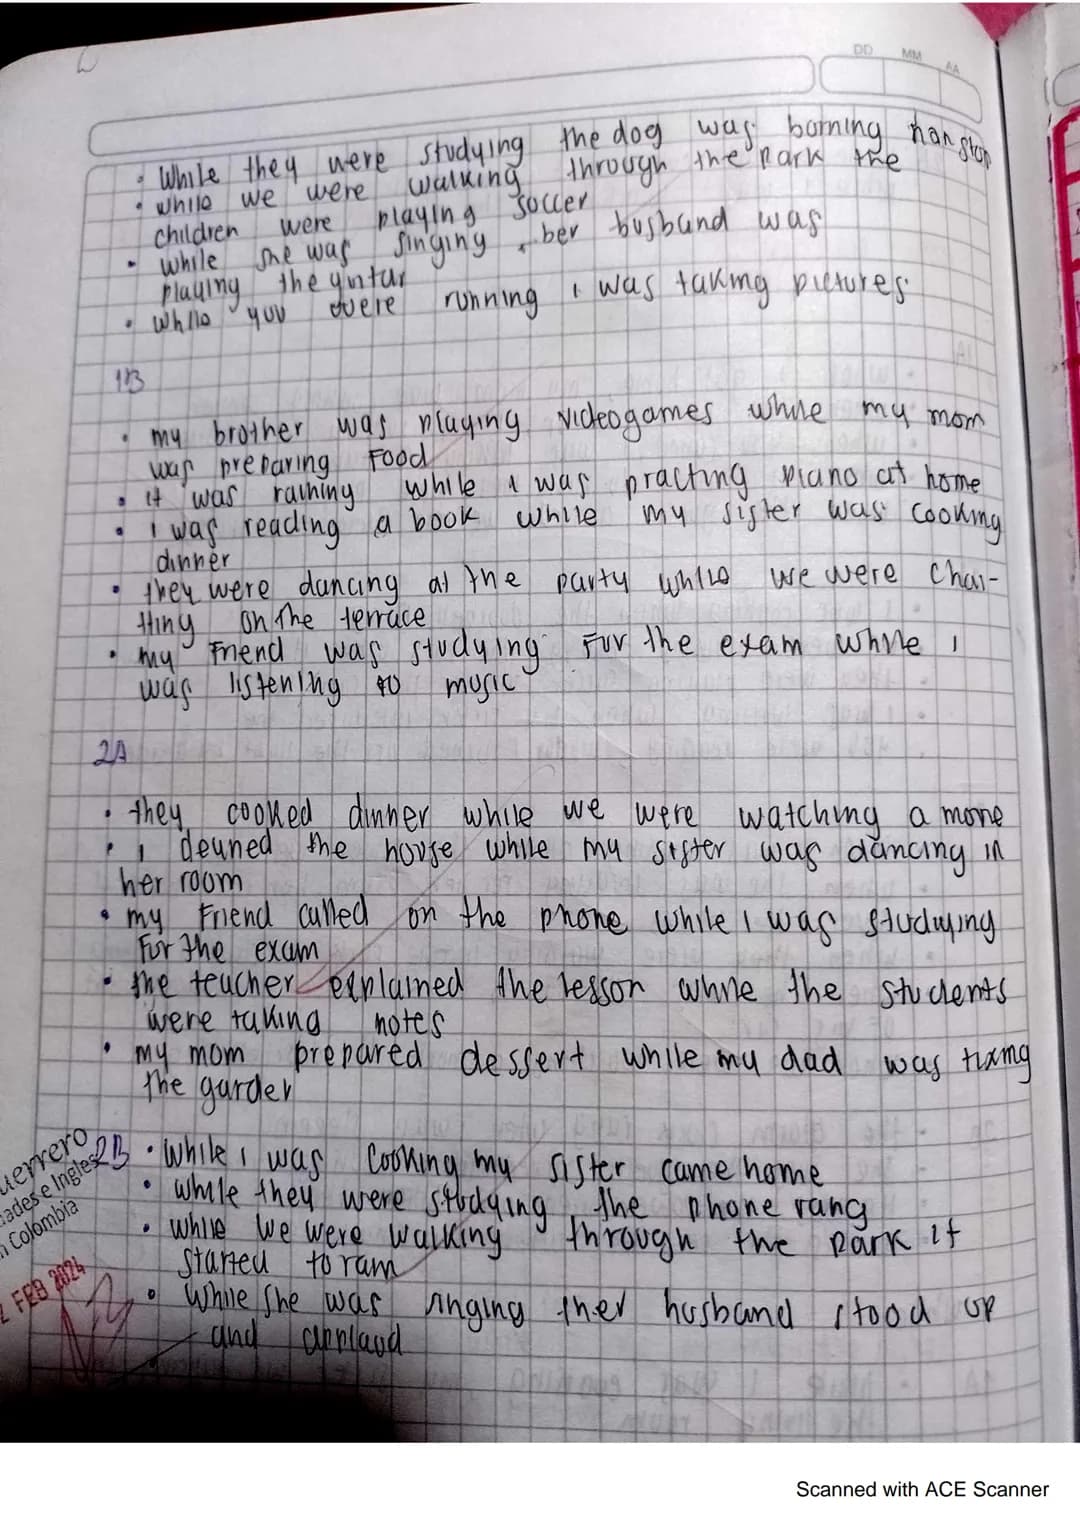 DD MM AA
• While they were studying the dog was barning non stop
• while we were walking through the park the
children were playing soccer
• while she was singing, her husband was
playing the guitar
• while you were running i was taking pictures
1B
• my brother was playing videogames while my mom
was preparing Food
• it was raining while i was practing piano at home
• i was reading a book while my sister was cooking
dinner
• they were dancing at the party while we were chat-
ting on the terrace
• my Friend was studying For the exam while i
was listening to music
2A
• they cooked dinner while we were watching a movie
• i cleaned the house while my sister was dancing in
her room
• my Friend called on the phone while i was studying
For the exam
• the teacher explained the lesson while the students
were taking notes
• my mom prepared dessert while my dad was fixing
the garden
2B • While i was cooking my sister came home
• while they were studying, the phone rang
• while we were walking through the park it
started to rain
• While she was singing ther husband stood up
and applaud
uerrero
ades e Ingles
n Colombia
FEB 2024
Scanned with ACE Scanner